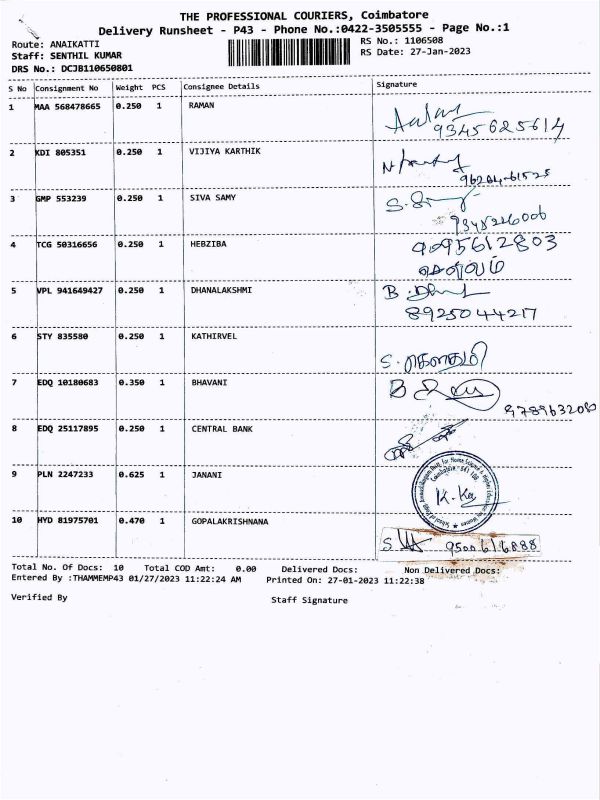 THE PROFESSIONAL COURIERS, Coimbatore
Delivery Runsheet - P43 - Phone No.:0422-3505555 - Page No.:1
Route: ANAIKATTI RS No.: 1106508
Staff: SENTHIL KUMAR RS Date: 27-Jan-2023
DRS No.: DCJB110650801
S No Consignment No Weight PCS Consignee Details Signature
1 MAA 568478665 0.250 1 RAMAN
9345625614
2 KDI 805351 0.250 1 VIJIYA KARTHIK
96204-61525
3 GMP 553239 0.250 1 SIVA SAMY
9345226006
4 TCG 50316656 0.250 1 HEBZIBA 9095612803
செல்வம்
5 VPL 941649427 0.250 1 DHANALAKSHMI B.
8925044217
6 STY 835580 0.250 1 KATHIRVEL
S. கௌதமி
7 EDQ 10180683 0.350 1 BHAVANI B
8 EDQ 25117895 0.250 1 CENTRAL BANK
9 PLN 2247233 0.625 1 JANANI
K.K
10 HYD 81975701 0.470 1 GOPALAKRISHNANA
S. 9500616888
Total No. Of Docs: 10 Total COD Amt: 0.00 Delivered Docs: Non Delivered Docs:
Entered By :THAMMEMP43 01/27/2023 11:22:24 AM Printed On: 27-01-2023 11:22:38
Verified By Staff Signature